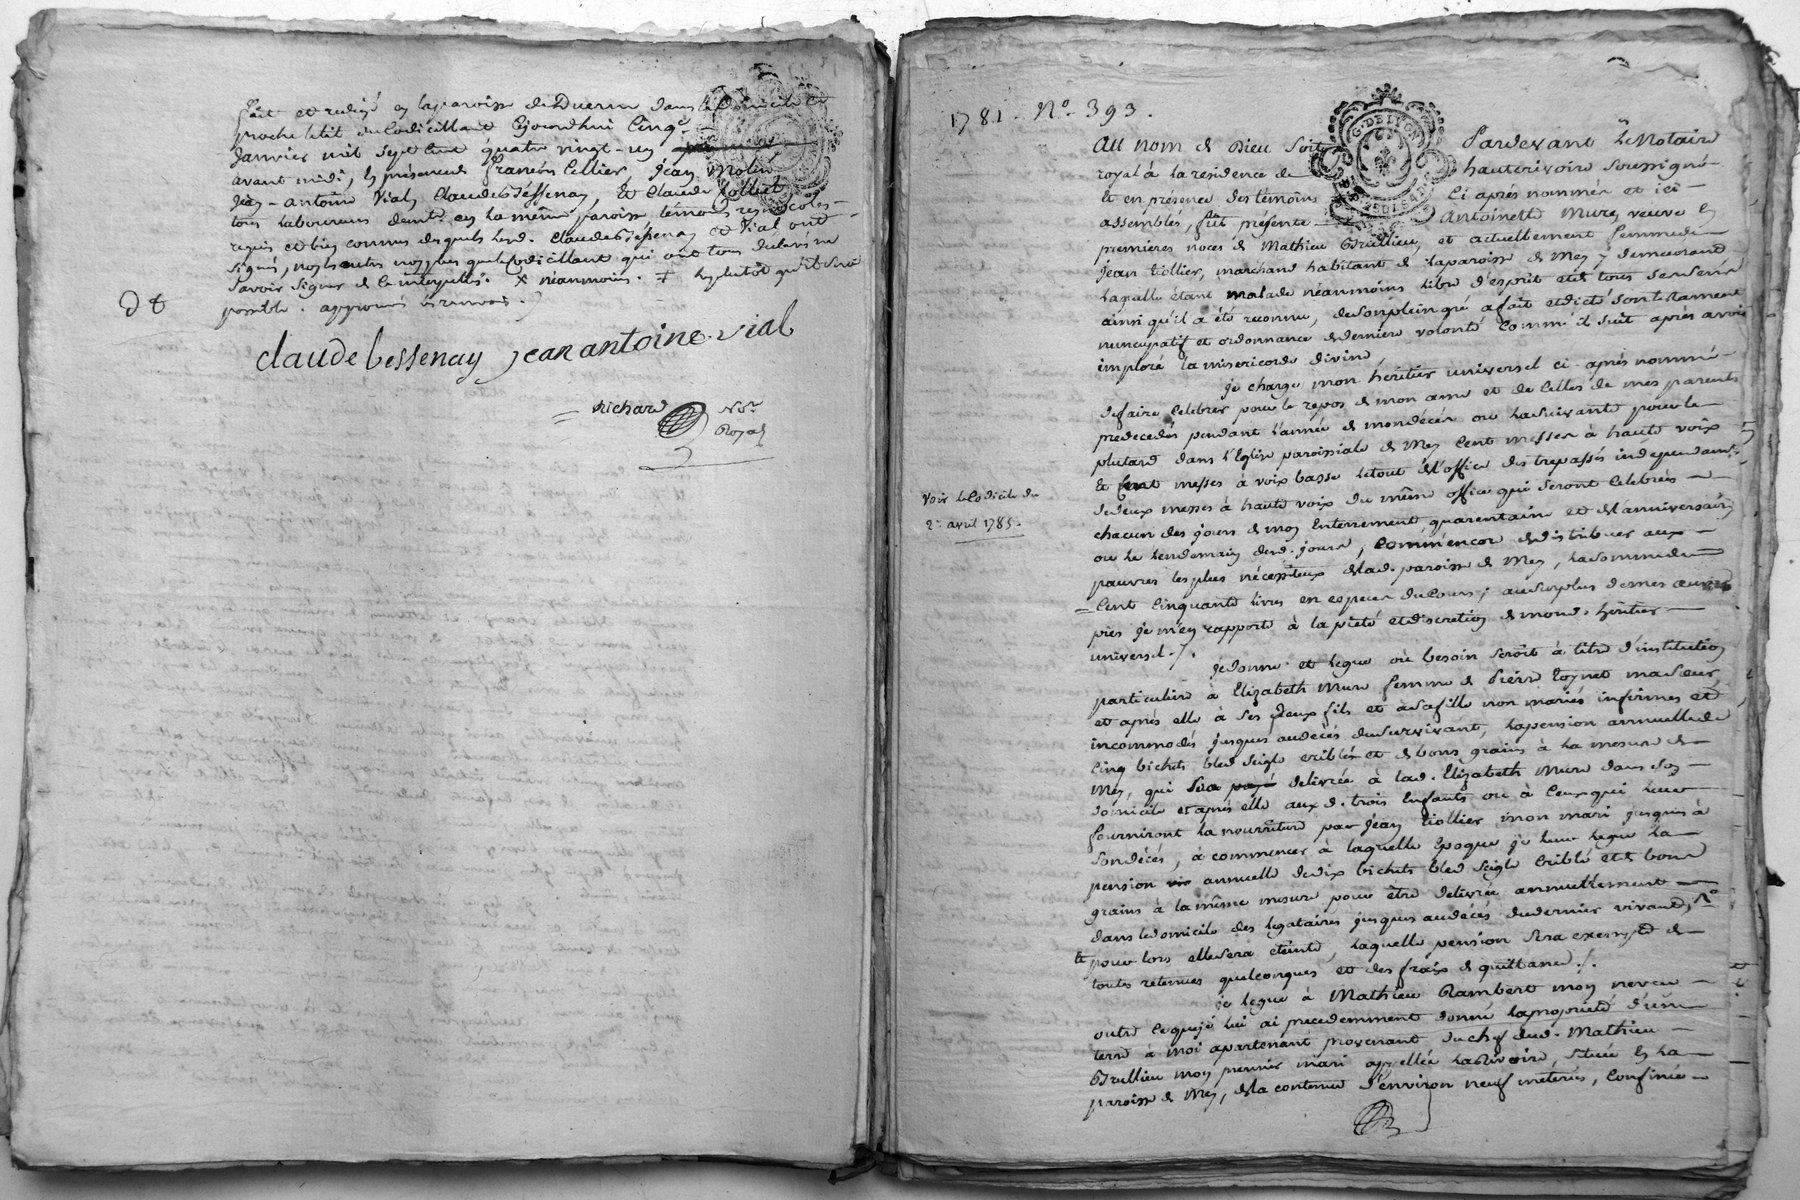 fait et redigé en la paroisse de Duerne dans le domicile et
proche le lit du Codicillant Cejourdhui Cinq.e
Janvier mil sept Cent quatre vingt-un
avant midi, En présence de françois Cellier, Jean Molin
Jean-antoine Vial, Claude Bessenay, Et Claude Collet
tous laboureurs demt. en la même paroisse témoins
requis et bien connus desquels led. Claude Bessenay et Vial ont
signés, non les autres non plus que le Codicillant qui ont tous déclaré ne
savoir signer de ce interpellés. X néanmoins. ‡ le plutôt qu'il sera
possible. approuvé les renvois.
claude bessenay jean antoine vial
richard No.re
Royal
1781. No. 393.
Au nom de Dieu Soit Pardevant Le Notaire
royal à la residence de hauterivoire Soussigné
Et en présence des témoins Ci après nommés et ici
assemblés, fut présente Antoinette Mure veuve En
premieres noces de Mathieu Grullieu et actuellement femme de
Jean tiollier, marchand habitant de la paroisse de Meys y demeurant
Laquelle étant malade néanmoins libre d'esprit et de tous ses sens
ainsi qu'il a été reconnu, de son plein gré a fait et dicté son testament
nuncupatif et ordonnance de derniere volonté Comme il suit après avoir
imploré la misericorde divine
Je charge mon héritier universel ci-après nommé
de faire Celebrer pour le repos de mon ame et de Celles de mes parents
predecedés pendant l'année de mon décès ou la suivante pour le
plutard dans l'Eglise paroissiale de Meys Cent messes à haute voix
Et Cent messes à voix basse le tout de l'office des trepassés indépendament
de deux messes à haute voix du même office qui seront Celebrées
chacun des jours de mon Enterrement, quarentaine et de l'anniversaire
ou le lendemain desd. jours, Comm'encor de distribuer aux
pauvres les plus nécessiteux de lad. paroisse de Meys, la somme de
Cent Cinquante livres en espèces du Cours; au surplus de mes œuvres
pies je m'en rapporte à la pieté et discretion de mond. héritier
universel.
Voir le Codicile du
2.e avril 1785.
Je donne et legue où besoin seroit à titre d'institution
particuliere à Elizabeth Mure femme de Pierre Coynet ma sœur
et après elle à ses deux fils et à sa fille non mariés infirmes et
incommodés jusques au décès du survivant, la pension annuelle de
Cinq bichets bled seigle criblés et de bons grains à la mesure de
Meys, qui Sera delivrée à lad. Elizabeth Mure dans son
domicile et après elle aux d. trois Enfants ou à Ceux qui leur
fourniront la nourriture par Jean tiollier mon mari jusques à
son décès, à commencer à laquelle Epoque je leur legue la
pension annuelle de dix bichets bled seigle Criblé et de bons
grains à la même mesure pour être delivrée annuellement
dans le domicile des legataires jusques au décès du dernier vivant,
Et pour lors elle sera éteinte, laquelle pension sera exempte de
toutes retenues quelconques et des fraix de quittance.
Je legue à Mathieu Rambert mon neveu
outre Ce que je lui ai precedemment donné la proprieté d'une
terre à moi apartenant provenant du chef dud. Mathieu
Grullieu mon premier mari appellée la Rivoire, située En la
paroisse de Meys, de la contenue d'environ neuf meterées, Confinée